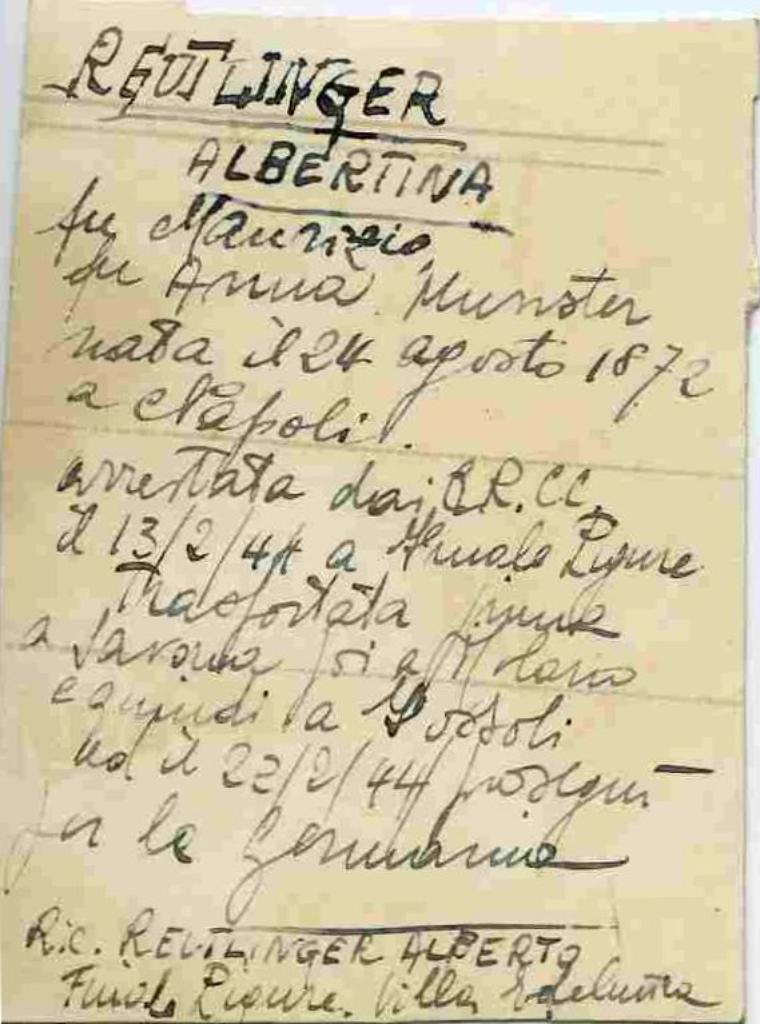 REUTLINGER
ALBERTINA
fu Maurizio,
fu Anna Munster
nata il 24 agosto 1872
a Napoli.
arrestata dai RR.CC.
il 13/2/44 a Finale Ligure
Trasportata prima
a Savona poi a Milano
e quindi a Fossoli
ed il 22/2/44 proseguì
per la Germania
Ric. REUTLINGER ALBERTO
Finale Ligure. Villa